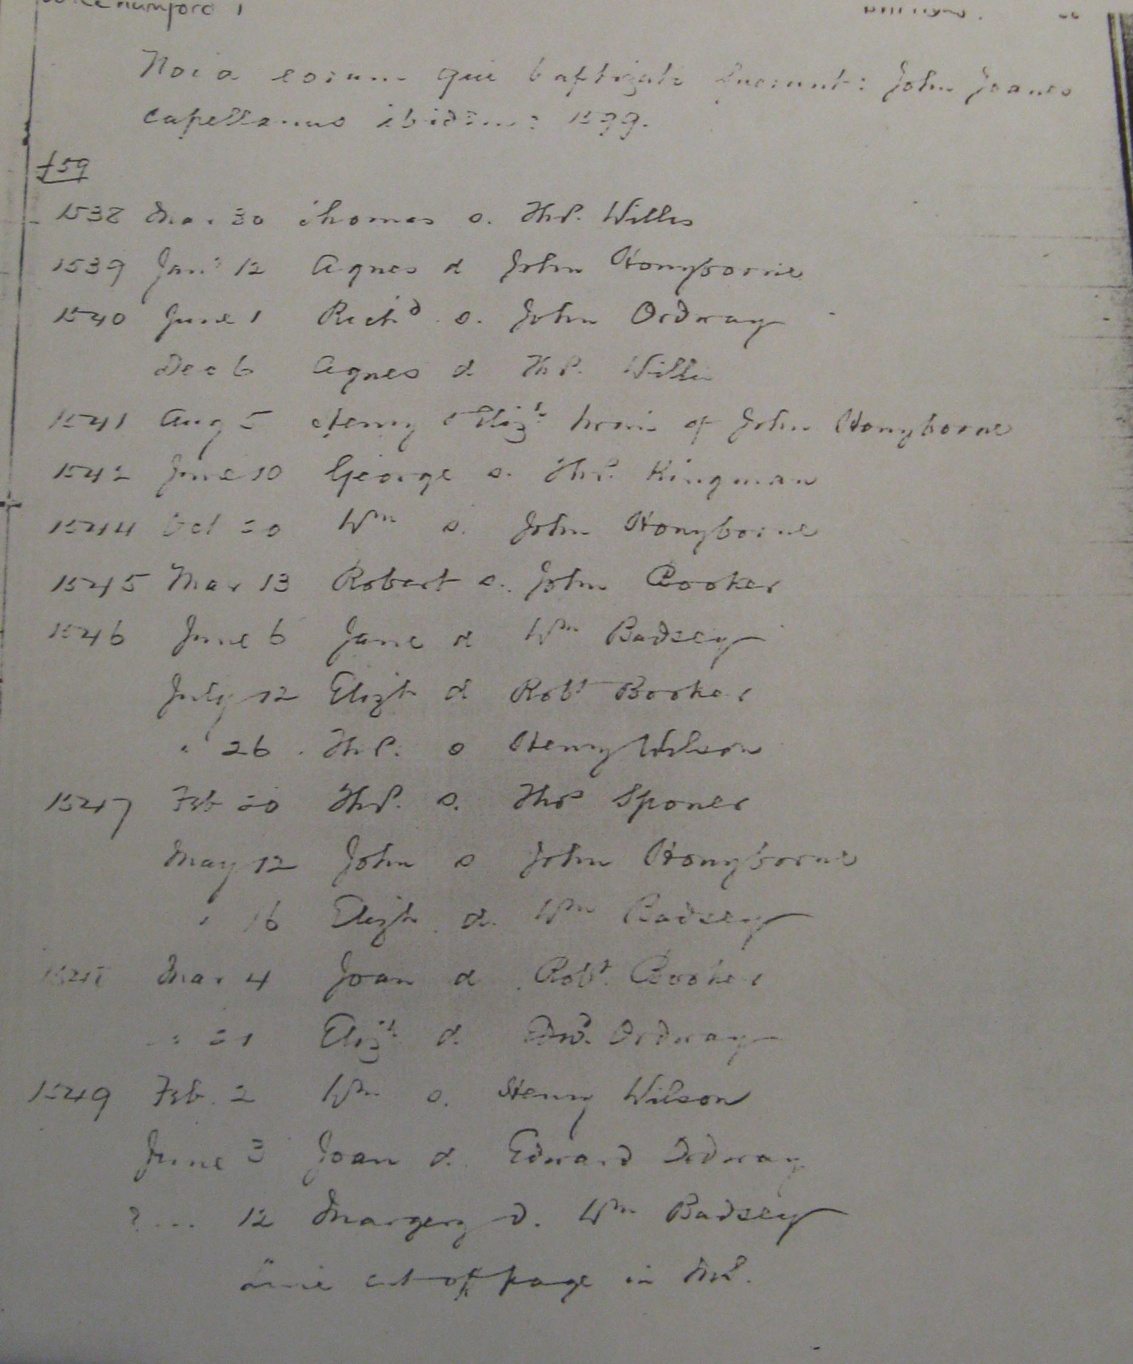 Noi'a eorum qui baptizati fuerunt: John Joanes
Capellanus ibidem: 1599.
f59
1538 Mar 30 Thomas s. Thos. Willis
1539 Jany 12 Agnes d John Honyborne
1540 June 1 Richd s. John Ordway
Dec 6 Agnes d. Thos. Willis
1541 Aug 5 Henry & Elizh twins of John Honyborne
1542 June 10 George s. Thos. Kingman
1544 Oct 20 Wm s. John Honyborne
1545 Mar 13 Robert s. John Cooker
1546 June 6 Jane d Wm Badsey
July 12 Elizh d Robt Booker
" 26. Thos. s Henry Wilson
1547 Feb 20 Thos. s. Thos Sponer
May 12 John s John Honyborne
" 16 Elizh d. Wm Badsey
Mar 4 Joan d. Robt. Cooker
" 21 Elizh d. Edwd. Ordway
1549 Feb. 2 Wm s. Henry Wilson
June 3 Joan d. Edward Ordway
? ... 12 Margery d. Wm Badsey
line cut off page in MS.